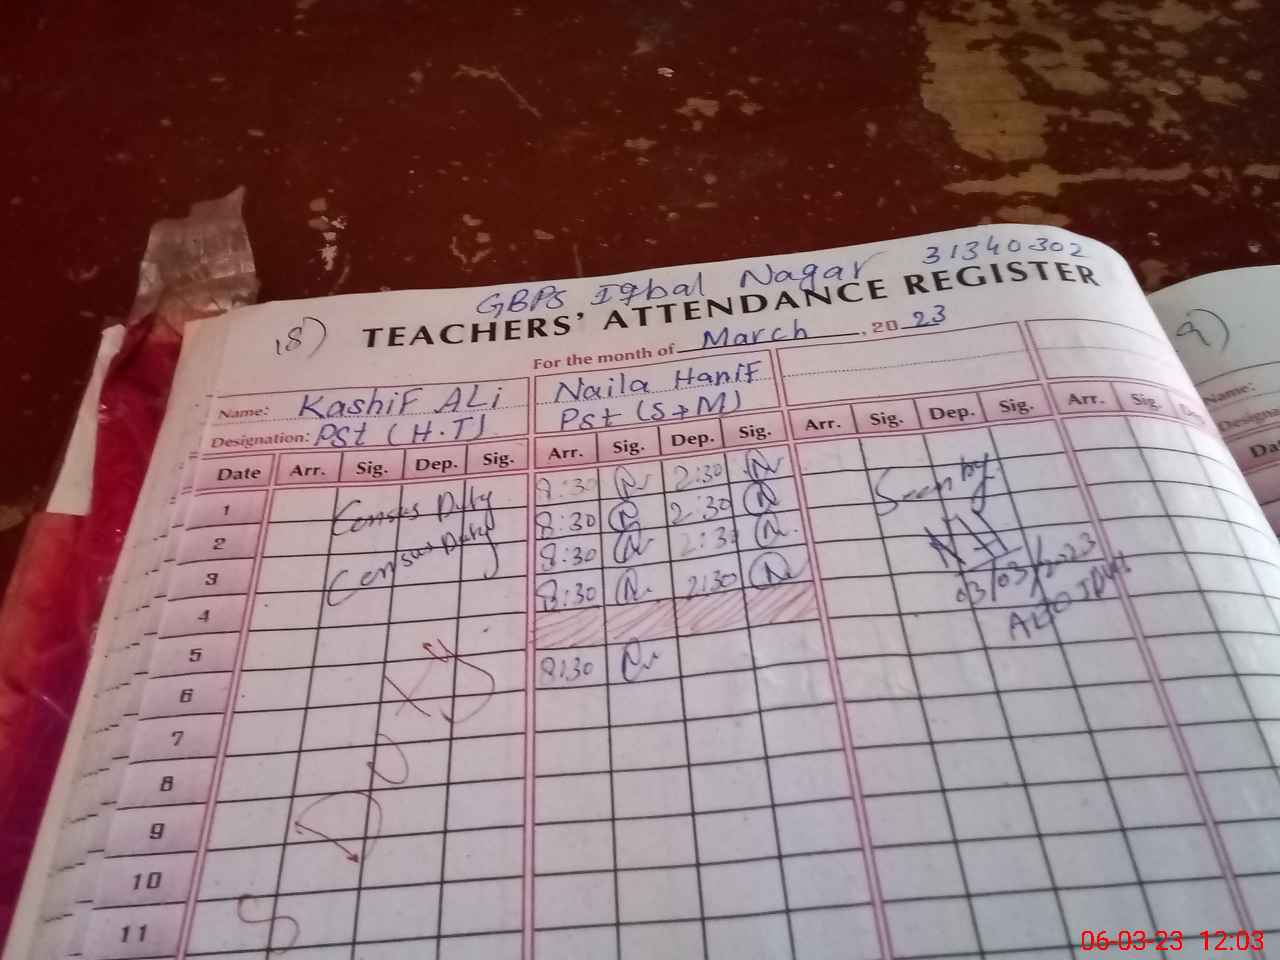 GBPS Iqbal Nagar 31340302
18) TEACHERS' ATTENDANCE REGISTER
For the month of March, 20 23
Name: Kashif ALi Naila Hanif
Designation: Pst (H.T) Pst (S+M)
Date Arr. Sig. Dep. Sig. Arr. Sig. Dep. Sig. Arr. Sig. Dep. Sig. Arr. Sig. Dep.
1 Census Duty 8:30 2:30 Seen by
2 Census Duty 8:30 2:30
3 8:30 2:30 03/03/2023
4 8:30 2:30
5
6 8:30
7
8
9
10
11
9)
Name:
06-03-23 12:03